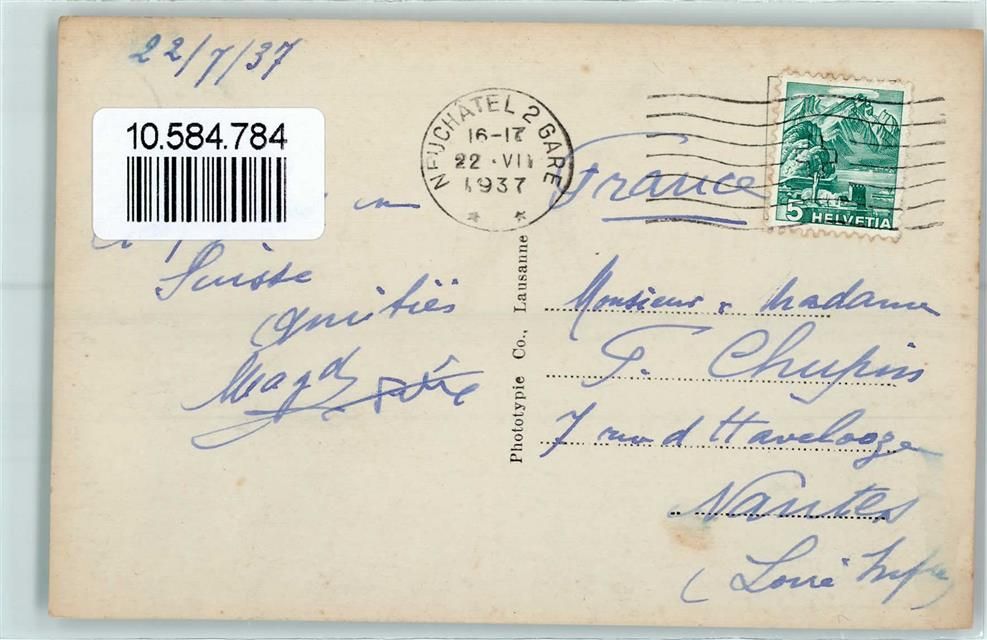 22/7/37
10.584.784
en
Suisse
amitiés
Magd
NEUCHÂTEL 2 GARE
16-17
22·VII
1937
France
5 HELVETIA
Phototypie Co., Lausanne
Monsieur & Madame
F. Chupin
7 rue d'Haveloose
Nantes
(Loire Infre)